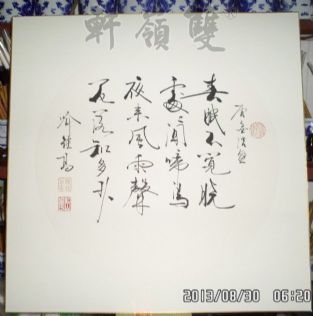 雙領軒
唐孟浩然
春眠不覺曉
處々聞啼鳥
夜來風雨聲
花落知多少
喻継高
2013/08/30 06:20